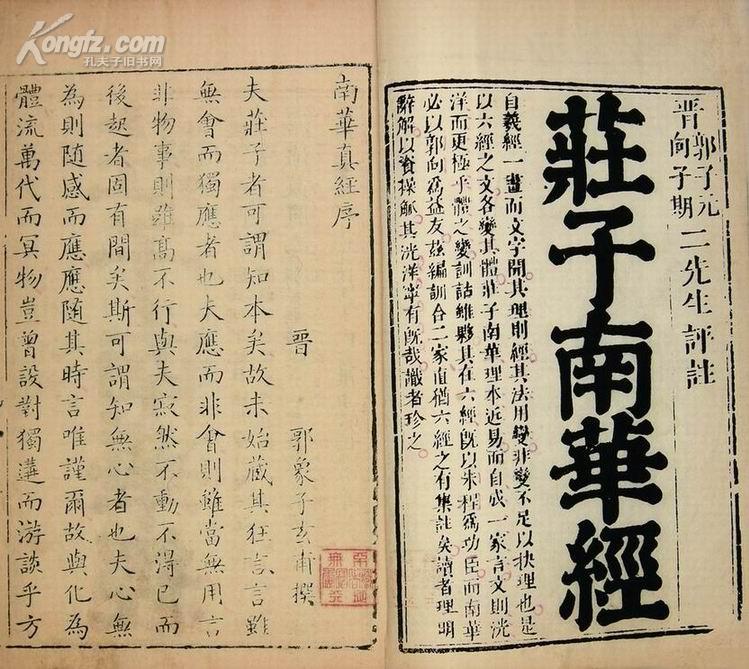 Kongfz.com
孔夫子旧书网
晋郭子元
向子期
二先生评註
莊子南華經
自羲經一畫而文字開其理則經其法用變非變不足以抉理也是
以六經之文各變其體莊子南華理本近易而自成一家言文則洸
洋而更極乎體之變訓詁雖夥其在六經旣以朱程爲功臣而南華
必以郭向爲益友茲編訓合二家直猶六經之有集註矣讀者理明
辭解以資操觚其洸洋寧有旣哉識者珍之
南華真經序
晉 郭象子玄甫撰
夫莊子者可謂知本矣故未始藏其狂言言雖
無會而獨應者也夫應而非會則雖當無用言
非物事則雖高不行與夫寂然不動不得已而
後起者固有間矣斯可謂知無心者也夫心無
為則隨感而應應隨其時言唯謹爾故與化為
體流萬代而冥物豈曾設對獨遘而游談乎方